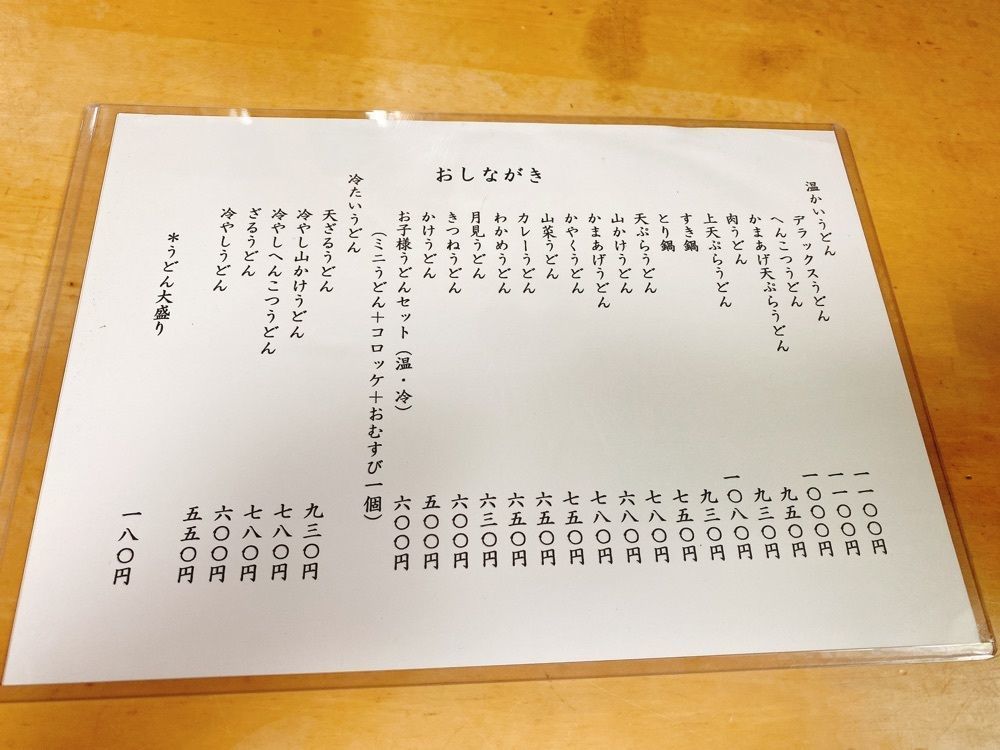 おしながき
温かいうどん
デラックスうどん 一一〇〇円
へんこつうどん 一一〇〇円
かまあげ天ぷらうどん 一〇〇〇円
肉うどん 九五〇円
上天ぷらうどん 九三〇円
すき鍋 一〇八〇円
とり鍋 九三〇円
天ぷらうどん 七五〇円
山かけうどん 七八〇円
かまあげうどん 六八〇円
かやくうどん 七八〇円
山菜うどん 七五〇円
カレーうどん 六五〇円
わかめうどん 六五〇円
月見うどん 六三〇円
きつねうどん 六〇〇円
かけうどん 五〇〇円
お子様うどんセット（温・冷） 六〇〇円
（ミニうどん＋コロッケ＋おむすび一個）
冷たいうどん
天ざるうどん 九三〇円
冷やし山かけうどん 七八〇円
冷やしへんこつうどん 七八〇円
ざるうどん 六〇〇円
冷やしうどん 五五〇円
＊うどん大盛り 一八〇円